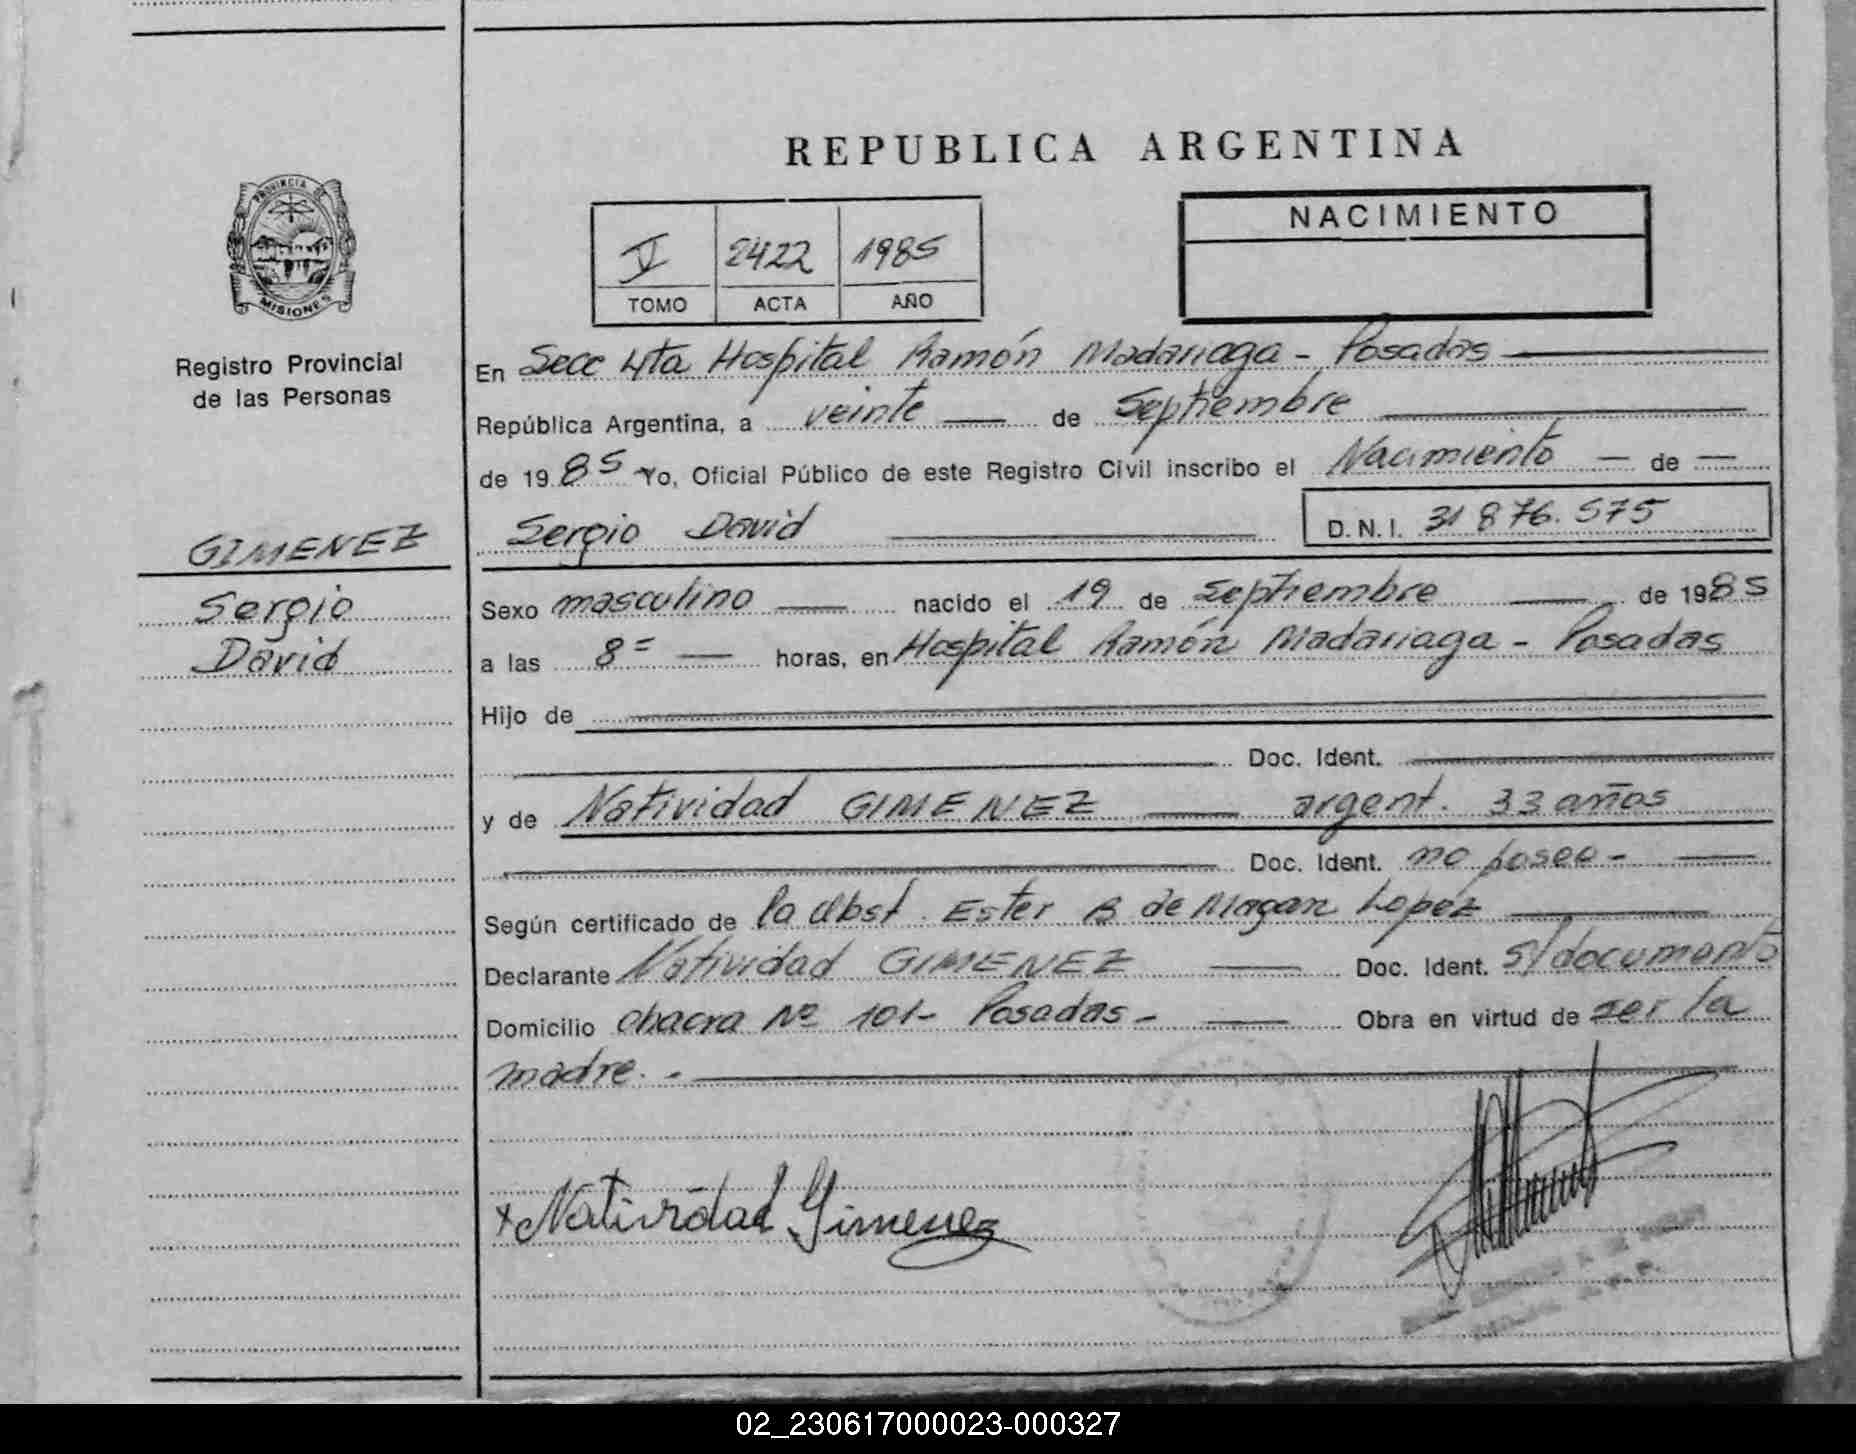 REPUBLICA ARGENTINA
PROVINCIA DE
MISIONES
Registro Provincial
de las Personas
V 2422 1985
TOMO ACTA AÑO
NACIMIENTO
En Secc 4ta Hospital Ramón Madariaga - Posadas
República Argentina, a veinte de Septiembre
de 1985 Yo, Oficial Público de este Registro Civil inscribo el Nacimiento de
Sergio David D.N.I. 31 876.575
GIMENEZ
Sergio
David
Sexo masculino nacido el 19 de septiembre de 1985
a las 8= horas, en Hospital Ramón Madariaga - Posadas
Hijo de
Doc. Ident.
y de Natividad GIMENEZ argent. 33 años
Doc. Ident. no posee -
Según certificado de la Obst. Ester B de Magan Lopez
Declarante Natividad GIMENEZ Doc. Ident. s/documento
Domicilio chacra Nº 101- Posadas - Obra en virtud de ser la
madre. -
x Natividad Gimenez
02_230617000023-000327